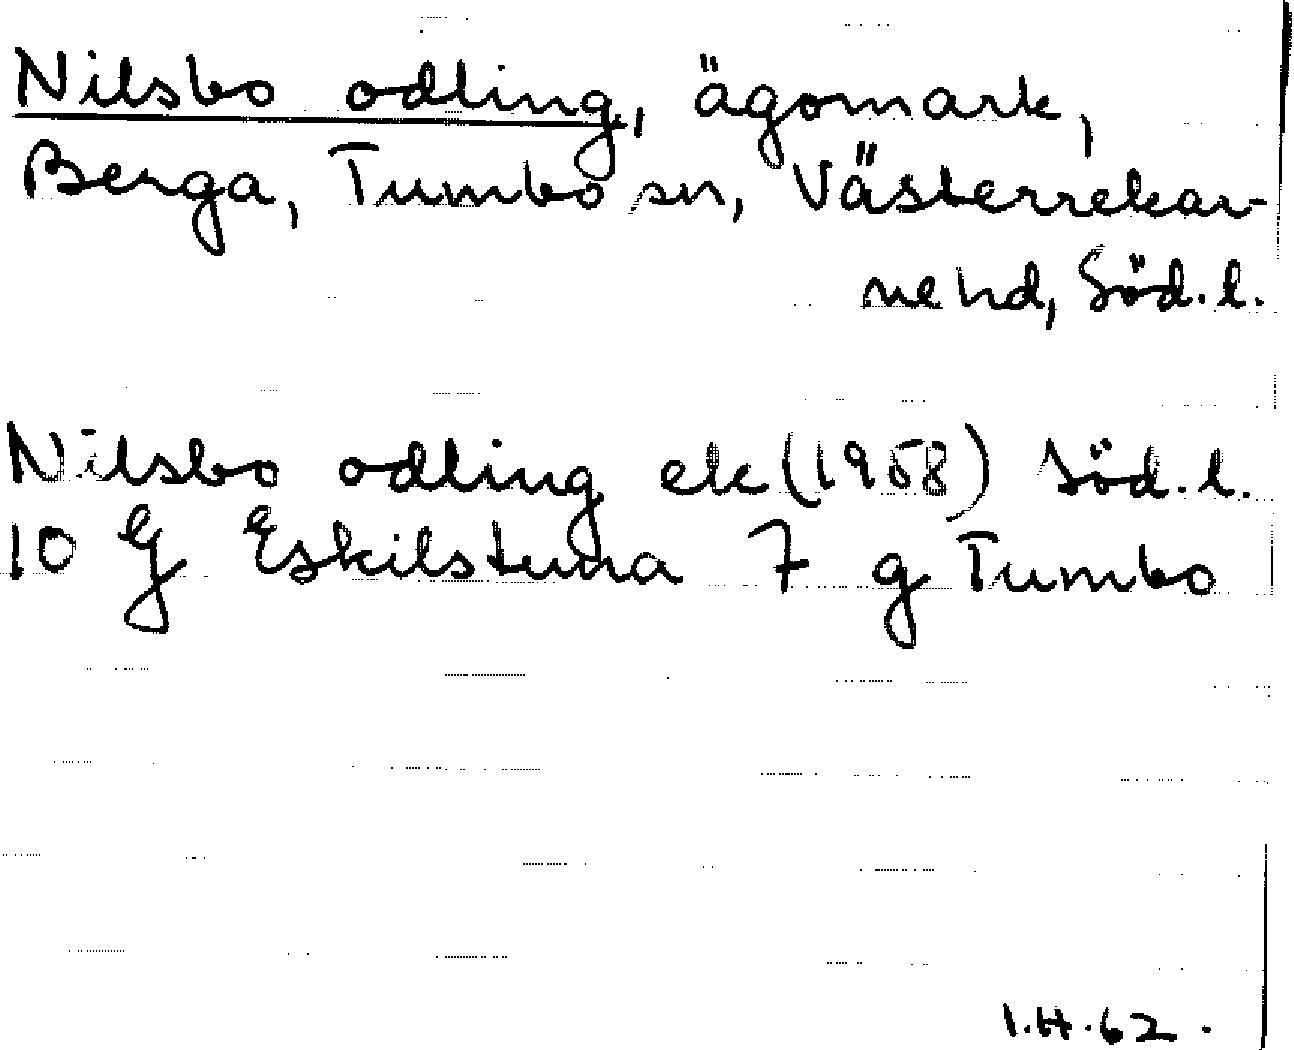 Nilsbo odling, ägomark,
Berga, Tumbo sn, Västerrekar-
ne hd, Söd. l.
Nilsbo odling ek (1958) Söd. l.
10 G Eskilstuna 7 g Tumbo
I.H. 62.